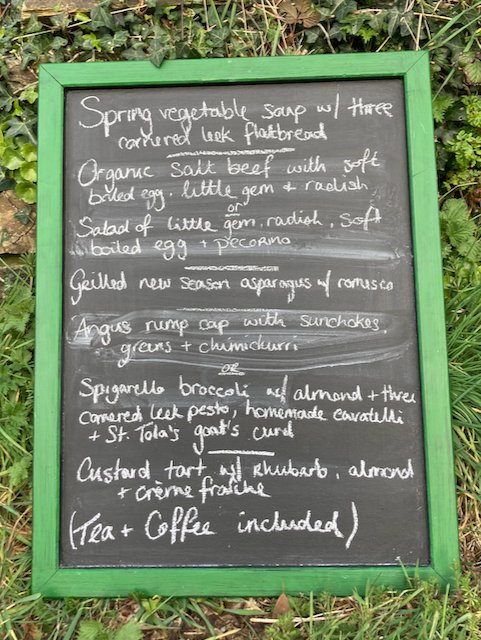 Spring vegetable soup w/ three
cornered leek flatbread
Organic salt beef with soft
boiled egg, little gem + radish
or
Salad of little gem, radish, soft
boiled egg + pecorino
Grilled new season asparagus w/ romesco
Angus rump cap with sunchokes,
greens + chimichurri
OR
Spigarello broccoli w/ almond + three
cornered leek pesto, homemade cavatelli
+ St. Tola's goat's curd
Custard tart w/ rhubarb, almond
+ crème fraîche
(Tea + Coffee included)